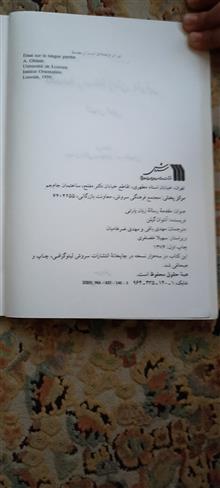 Essai sur la langue parthe
A. Ghilain
Université de Louvain
Institut Orientaliste
Louvain, 1939.
سروش
تهران، خیابان استاد مطهری، تقاطع خیابان دکتر مفتح، ساختمان جام‌جم
مرکز پخش: مجتمع فرهنگی سروش، معاونت بازرگانی، ۶۴۰۴۲۵۵
عنوان: مقدمه رسالهٔ زبان پارتی
نویسنده: آنتوان گیلن
مترجمان: مهدی باقی و مهدی ضرغامیان
ویراستار: سهیلا صنعوی
چاپ اول: ۱۳۷۶
این کتاب در سه‌هزار نسخه در چاپخانهٔ انتشارات سروش لیتوگرافی، چاپ و
صحافی شد.
همهٔ حقوق محفوظ است.
شابک: ۱-۱۴۰-۴۳۵-۹۶۴
ISBN: 964-435-140-1